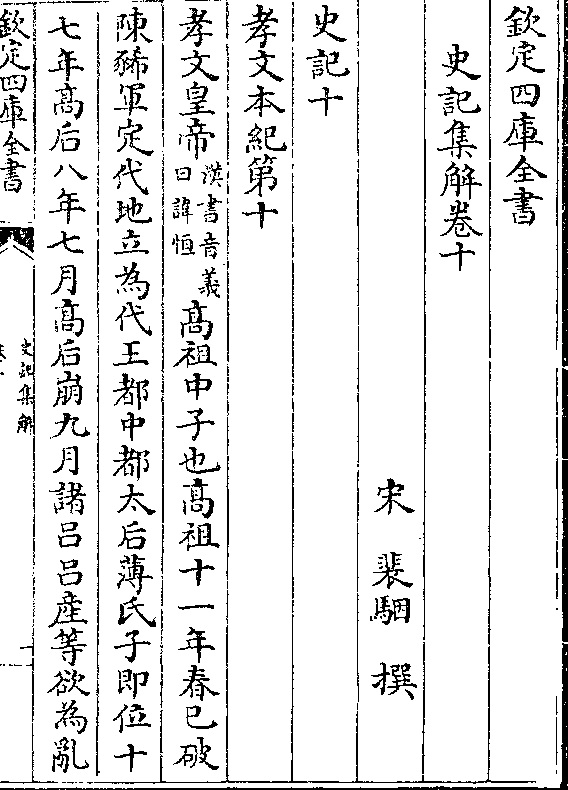 欽定四庫全書
史記集解卷十
宋 裴駰 撰
史記十
孝文本紀第十
孝文皇帝漢書音義曰諱恒高祖中子也高祖十一年春已破
陳豨軍定代地立為代王都中都太后薄氏子即位十
七年高后八年七月高后崩九月諸呂呂產等欲為亂
欽定四庫全書
史記集解